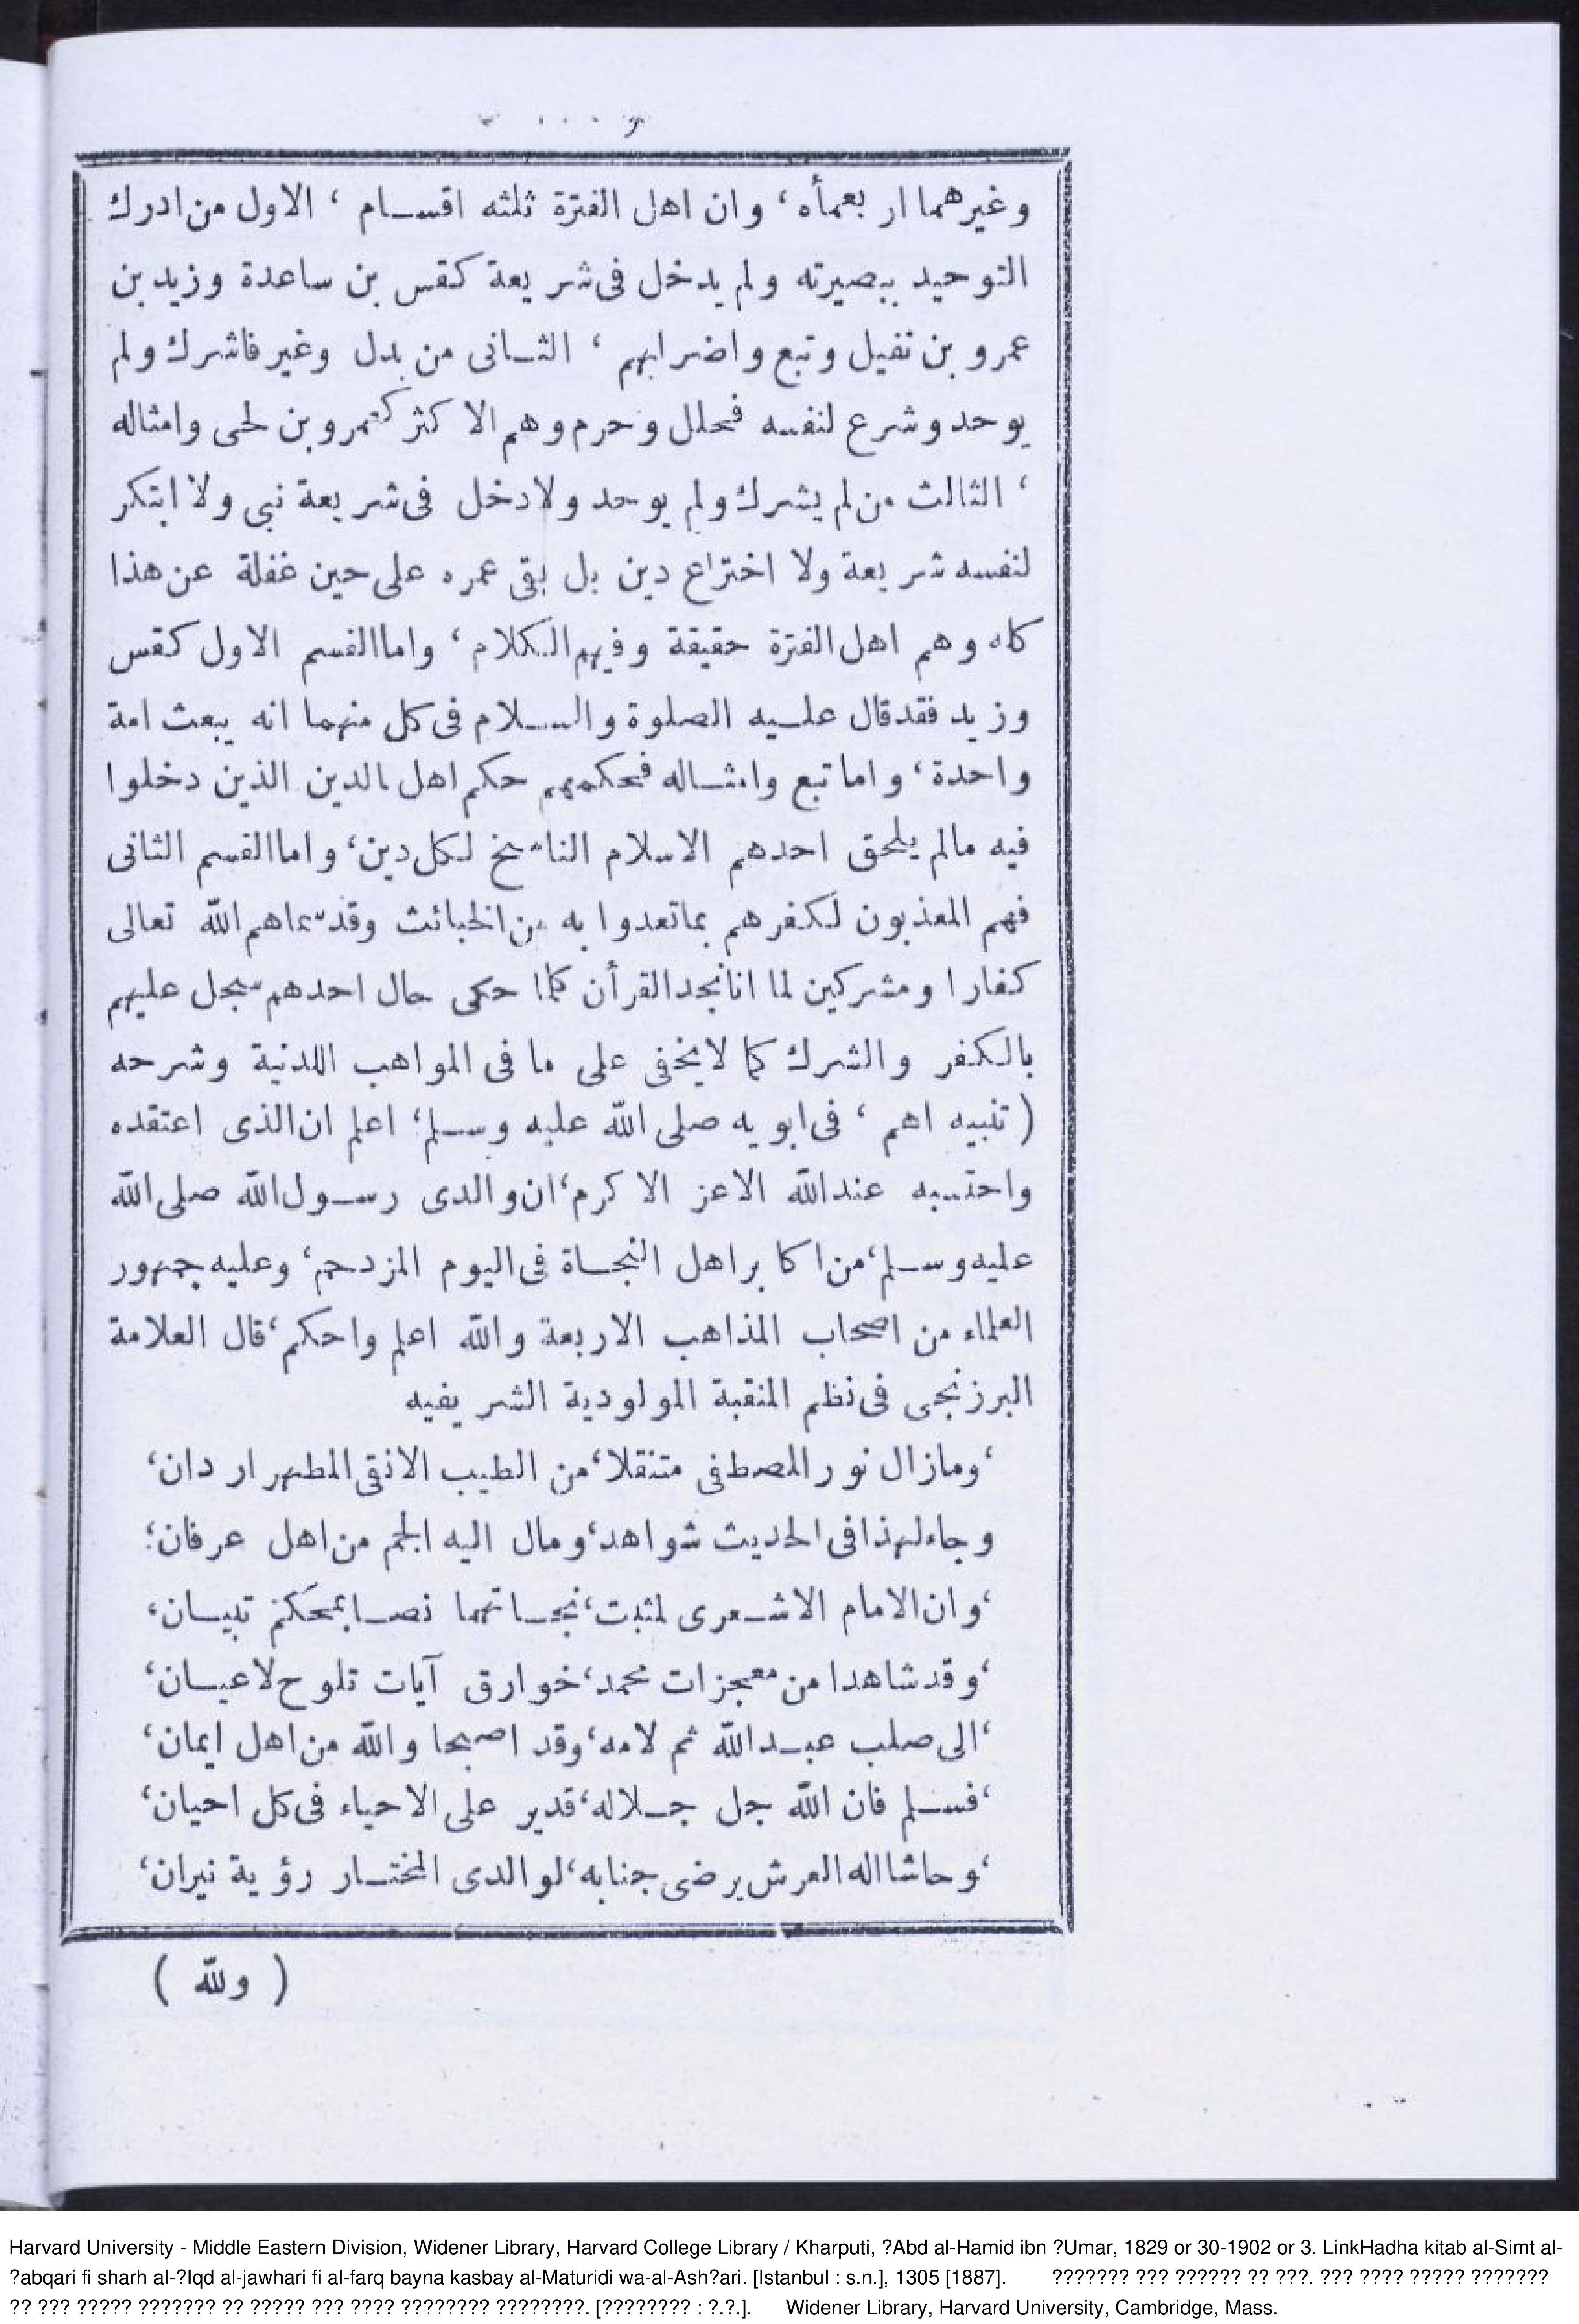 وغيرهما اربعمأه، وان اهل الفترة ثلثه اقسام، الاول من ادرك
التوحيد ببصيرته ولم يدخل فى شريعة كقس بن ساعدة وزيد بن
عمرو بن نفيل وتبع واضرابهم، الثانى من بدل وغير فاشرك ولم
يوحد وشرع لنفسه فحلل وحرم وهم الاكثر كعمرو بن لحى وامثاله
، الثالث من لم يشرك ولم يوحد ولا دخل فى شريعة نبى ولا ابتكر
لنفسه شريعة ولا اختراع دين بل بقى عمره على حين غفلة عن هذا
كله وهم اهل الفترة حقيقة وفيهم الكلام، واما القسم الاول كقس
وزيد فقد قال عليه الصلوة والسلام فى كل منهما انه يبعث امة
واحدة، واما تبع وامثاله فحكمهم حكم اهل الدين الذين دخلوا
فيه مالم يلحق احدهم الاسلام الناسخ لكل دين، واما القسم الثانى
فهم المعذبون لكفرهم بما تعدوا به من الخبائث وقد سماهم الله تعالى
كفارا ومشركين لما انا نجد القرأن كلما حكى حال احدهم سجل عليهم
بالكفر والشرك كما لا يخفى على ما فى المواهب اللدنية وشرحه
( تنبيه اهم، فى ابويه صلى الله عليه وسلم؛ اعلم ان الذى اعتقده
واحتسبه عند الله الاعز الاكرم، ان والدى رسول الله صلى الله
عليه وسلم، من اكابر اهل النجاة فى اليوم المزدحم، وعليه جمهور
العلماء من اصحاب المذاهب الاربعة والله اعلم واحكم، قال العلامة
البرزنجى فى نظم المنقبة المولودية الشريفيه
، ومازال نور المصطفى متنقلا، من الطيب الانقى المطهر اردان،
وجاء لهذا فى الحديث شواهد، ومال اليه الجم من اهل عرفان؛
، وان الامام الاشعرى لمثبت، نجاتهما نصا بمحكم تبيان،
، وقد شاهدا من معجزات محمد، خوارق آيات تلوح لاعيان،
، الى صلب عبد الله ثم لامه، وقد اصبحا والله من اهل ايمان،
، فسلم فان الله جل جلاله، قدير على الاحياء فى كل احيان،
، وحاشا اله العرش يرضى جنابه، لوالدى المختار رؤية نيران،
( ولله )
Harvard University - Middle Eastern Division, Widener Library, Harvard College Library / Kharputi, ?Abd al-Hamid ibn ?Umar, 1829 or 30-1902 or 3. LinkHadha kitab al-Simt al-
?abqari fi sharh al-?Iqd al-jawhari fi al-farq bayna kasbay al-Maturidi wa-al-Ash?ari. [Istanbul : s.n.], 1305 [1887]. ??????? ??? ?????? ?? ???. ??? ???? ????? ???????
?? ??? ????? ??????? ?? ????? ??? ???? ???????? ????????. [???????? : ?.?.]. Widener Library, Harvard University, Cambridge, Mass.